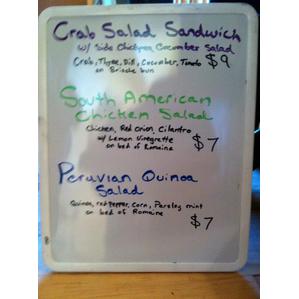 Crab Salad Sandwich
w/ Side Chickpea, Cucumber Salad
Crab, Thyme, Dill, Cucumber, Tomato $9
on Brioche bun
South American
Chicken Salad
Chicken, Red Onion, Cilantro
w/ Lemon Vinegrette $7
on bed of Romaine
Peruvian Quinoa
Salad
Quinoa, red Pepper, Corn, Parsley mint
on bed of Romaine $7